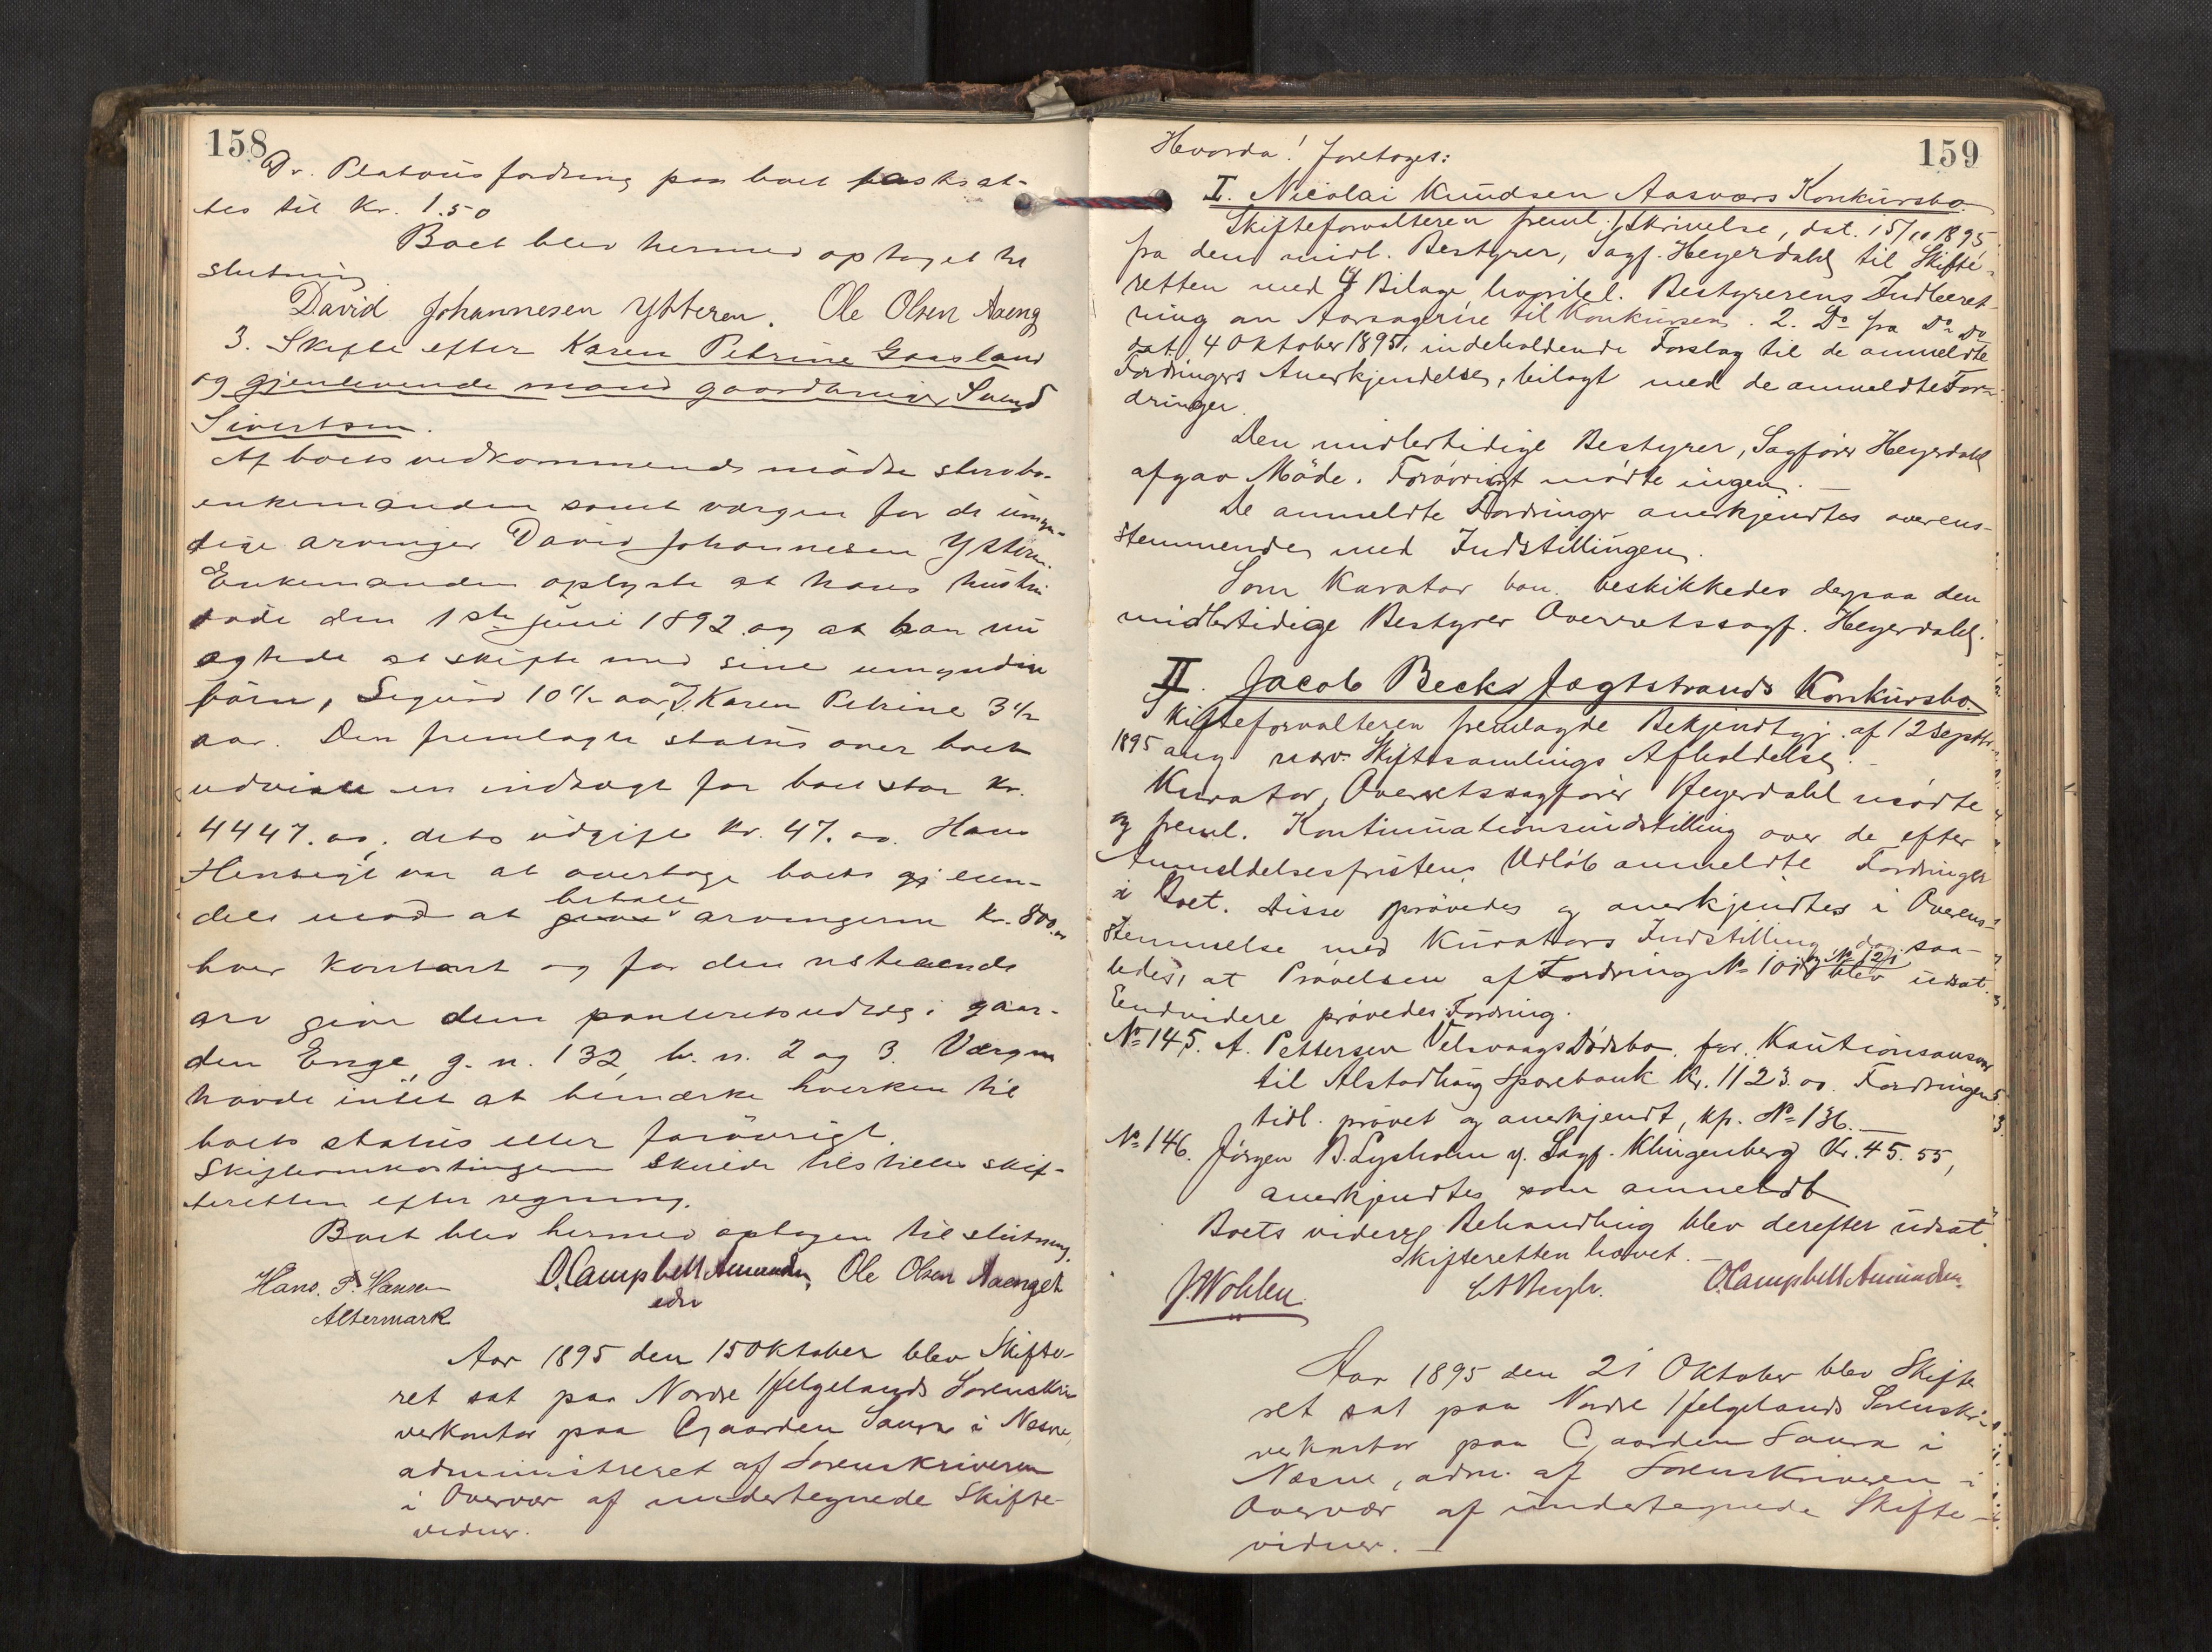 158
Dr. Platous fordring paa boet fastsat-
tes til Kr. 1.50
Boet blev hermed optaget til
slutning
David Johannesen Ytteren. Ole Olsen Aaeng
3. Skifte efter Karen Petrine Gaasland
og gjenlevende mand gaardbruger Svend
Sivertsen.
Af boets vedkommende mødte
enkemanden samt værgen for de umyn-
dige arvinger David Johannesen Ytteren.
Enkemanden oplyste at hans hustru
døde den 1ste juni 1892 og at han nu
agtede at skifte med sine umyndige
børn, Sigurd 10 1/2 aar, Karen Petrine 3 1/2
aar. Den fremlagte status over boet
udviste en indtægt for boet stor Kr.
4447.00, dets udgift Kr. 47.00. Hans
Hensigt var at overtage boets eien-
dele mod at betale arvingerne Kr. 800.00
hver kontant og for den resterende
arv give dem panteretsudlæg i gaar-
den Enge, g. n. 132, b. n. 2 og 3. Værgen
havde intet at bemærke hverken til
boets status eller forøvrigt.
Skifteomkostningerne skulde tilstilles skif-
teretten efter regning.
Boet blev hermed optagen til slutning.
Hans P. Hansen O. Campbell Amundsen Ole Olsen Aaenget
Altermark edsv
Aar 1895 den 15 Oktober blev Skifte-
ret sat paa Nordre Helgelands Sorenskri-
verkontor paa Gaarden Saura i Nesne,
administreret af Sorenskriveren
i Overvær af undertegnede Skifte-
vidner.
159
Hvorda! foretoges:
I. Nicolai Knudsen Aasværs Konkursbo.
Skifteforvalteren freml. 1, Skrivelse, dat. 15/10 1895
fra den midl. Bestyrer, Sagf. Heyerdahl til Skifte-
retten med 4 Bilage hvoribl. Bestyrerens Indberet-
ning om Aarsagerne til Konkursen. 2. Do fra Do Do
dat. 4 Oktober 1895, indeholdende Forslag til de anmeldte
Fordringers Anerkjendelse, bilagt med de anmeldte For-
dringer.
Den midlertidige Bestyrer, Sagfører Heyerdahl
afgav Møde. Forøvrigt mødte ingen.
De anmeldte Fordringer anerkjendtes overens-
stemmende med Indstillingen.
Som Kurator bon. beskikkedes derpaa den
midlertidige Bestyrer Overretssagf. Heyerdahl.
II. Jacob Becks Jægtstrands Konkursbo.
Skifteforvalteren fremlagde Bekjendtgj. af 12 Septbr
1895 ang nærv. Skiftesamlings Afholdelse.
Kurator, Overretssagfører Heyerdahl mødte
og freml. Kontinuationsindstilling over de efter
Anmeldelsesfristens Udløb anmeldte Fordringer
i Boet. Disse prøvedes og anerkjendtes i Overens-
stemmelse med Kurators Indstilling, dog saa-
ledes, at Prøvelsen af Fordring No 101 og No 121 blev udsat.
Endvidere prøvedes Fordring.
No 145. A. Pettersen Velsvaags Dødsbo, for Kautionsansvar
til Alstadhaug Sparebank Kr. 1123.00. Fordringen
tidl. prøvet og anerkjendt, kfr. No 136.
No 146. Jørgen B. Lysholm v. Sagf. Klingenberg Kr. 45.55,
anerkjendtes som anmeldt
Boets videre Behandling blev derefter udsat.
Skifteretten hævet.
O. Campbell Amundsen
Aar 1895 den 21 Oktober blev Skifte
ret sat paa Nordre Helgelands Sorenskri-
verkontor paa Gaarden Saura i
Nesne, adm. af Sorenskriveren i
Overvær af undertegnede Skifte-
vidner.